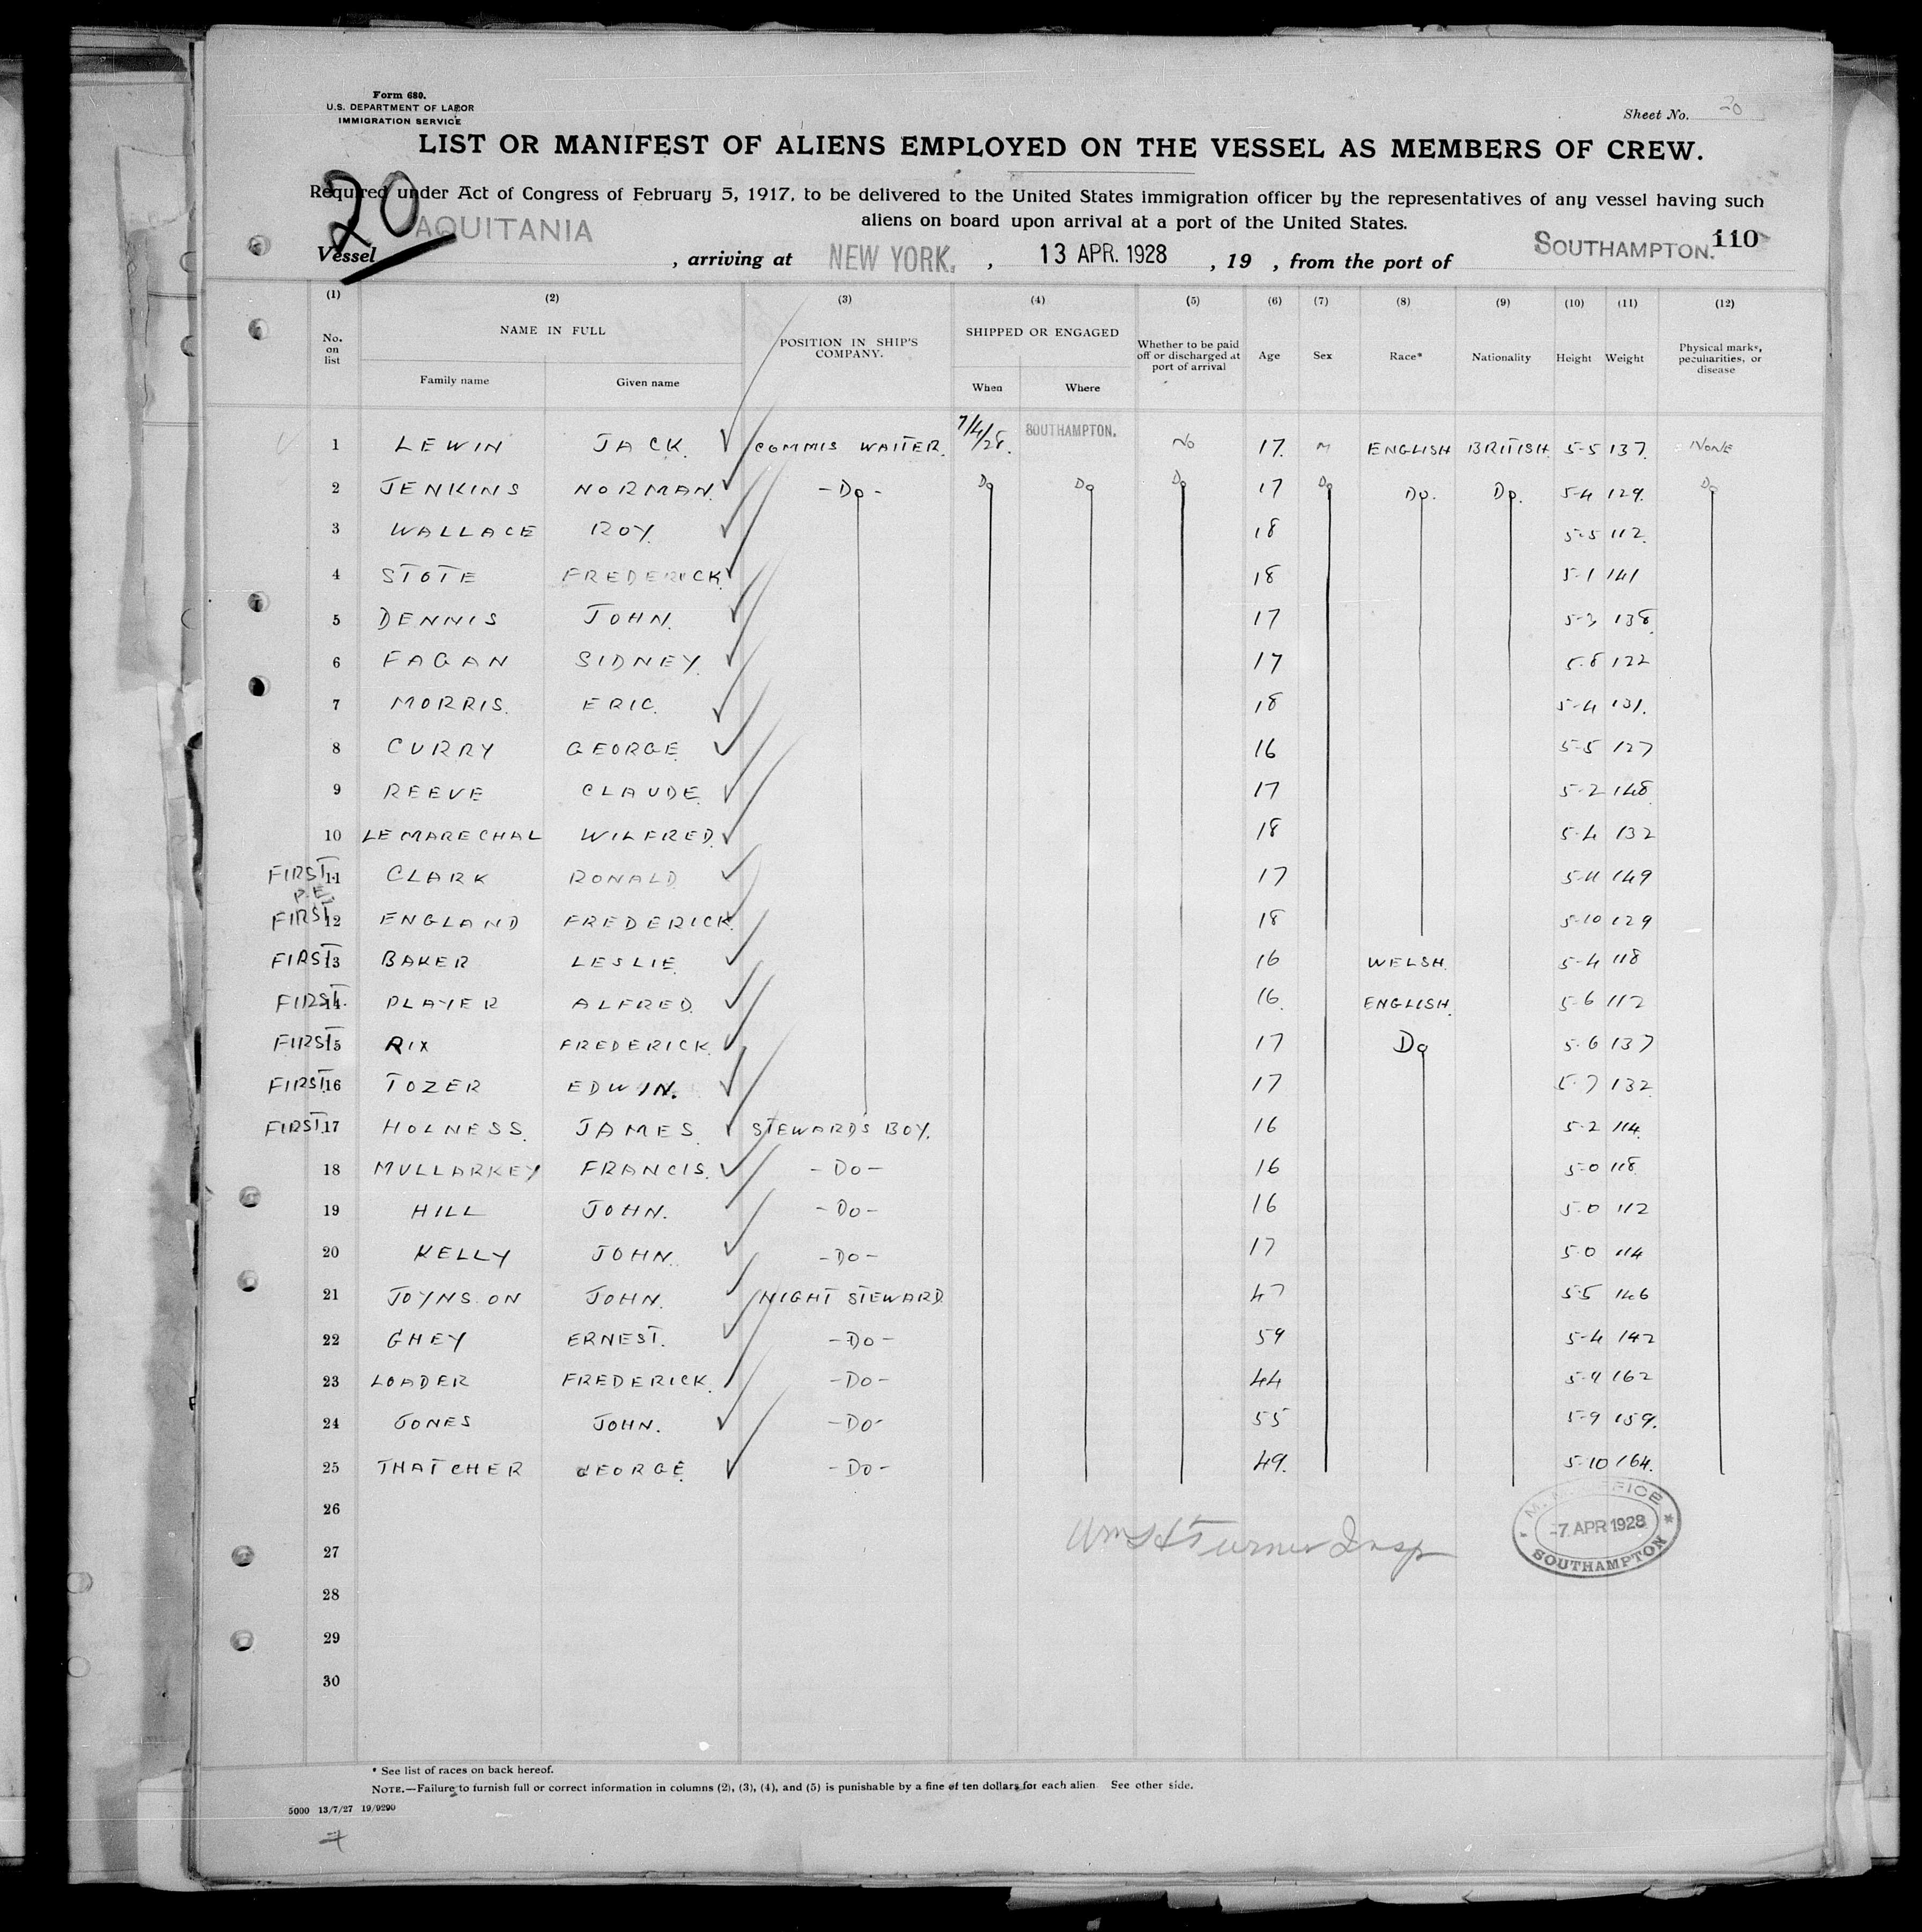 Form 680.
U.S. DEPARTMENT OF LABOR
IMMIGRATION SERVICE
Sheet No. 20
LIST OR MANIFEST OF ALIENS EMPLOYED ON THE VESSEL AS MEMBERS OF CREW.
20
Required under Act of Congress of February 5, 1917, to be delivered to the United States immigration officer by the representatives of any vessel having such
aliens on board upon arrival at a port of the United States.
Vessel AQUITANIA, arriving at NEW YORK, 13 APR. 1928, 19 , from the port of SOUTHAMPTON. 110
(1) (2) (3) (4) (5) (6) (7) (8) (9) (10) (11) (12)
No. on list NAME IN FULL POSITION IN SHIP'S COMPANY. SHIPPED OR ENGAGED Whether to be paid off or discharged at port of arrival Age Sex Race* Nationality Height Weight Physical marks, peculiarities, or disease
Family name Given name When Where
1 LEWIN JACK. COMMIS WAITER. 7/4/28. SOUTHAMPTON. No 17. M ENGLISH BRITISH. 5-5 137. NONE
2 JENKINS NORMAN. -Do- Do Do Do 17 Do Do. Do. 5-4 129. Do
3 WALLACE ROY. 18 5-5 112.
4 STOTE FREDERICK. 18 5-1 141
5 DENNIS JOHN. 17 5-3 138.
6 FAGAN SIDNEY. 17 5-8 122
7 MORRIS. ERIC. 18 5-4 131.
8 CURRY GEORGE. 16 5-5 127
9 REEVE CLAUDE. 17 5-2 148
10 LE MARECHAL WILFRED. 18 5-4 132
FIRST 11 CLARK RONALD 17 149
P.E.
FIRST 12 ENGLAND FREDERICK. 18 5-10 129
FIRST 13 BAKER LESLIE. 16 WELSH. 5-4 118
FIRST 14 PLAYER ALFRED. 16. ENGLISH. 5-6 112
FIRST 15 RIX FREDERICK. 17 Do 5-6 137
FIRST 16 TOZER EDWIN. 17 5-7 132
FIRST. 17 HOLNESS. JAMES. STEWARDS BOY. 16 5-2 114.
18 MULLARKEY FRANCIS. -Do- 16 5-0 118.
19 HILL JOHN. -Do- 16 5-0 112
20 KELLY JOHN. -Do- 17 5-0 114
21 JOYNSON JOHN. NIGHT STEWARD 47 5-5 146
22 GHEY ERNEST. -Do- 59 5-4 142
23 LOADER FREDERICK. -Do- 44 5-9 162
24 JONES JOHN. -Do- 55 5-9 159.
25 THATCHER GEORGE. -Do- 49. 5-10 164.
26
27
28
29
30
Wm H Turner Insp
OFFICE
-7 APR 1928
SOUTHAMPTON
* See list of races on back hereof.
NOTE.—Failure to furnish full or correct information in columns (2), (3), (4), and (5) is punishable by a fine of ten dollars for each alien See other side.
5000 13/7/27 19/9290